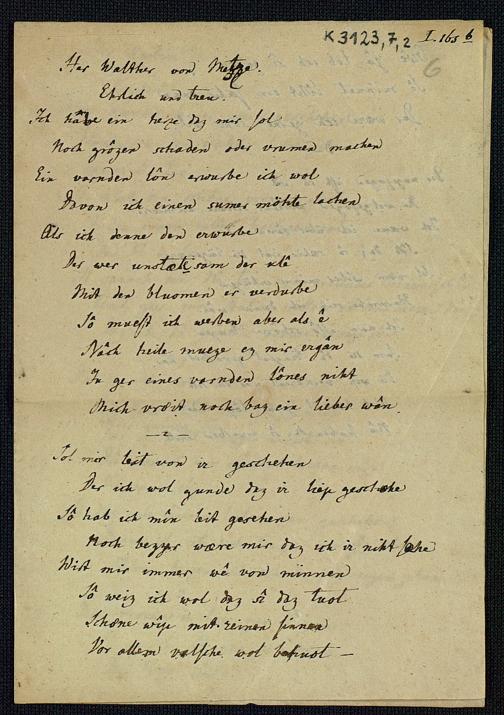 K 3123,7,2 I. 165 b
6
Her Walther von Metze.
Ehrlich und treu.
Ich habe ein herze daz mir sol
Noch grôzen schaden oder vrumen machen
Ein varnden lôn erwurbe ich wol
Davon ich einen sumer möhte lachen
Als ich denne den erwurbe
Der wer unstæte sam der klê
Mit den bluomen er verdurbe
Sô muest ich werben aber als ê
Nâch heile mueze ez mir ergân
In ger eines varnden lônes niht
Mich vröit noch baz ein lieber wân.
— 2 —
Sol mir leit von ir geschehen
Der ich wol gunde daz ir liep geschæhe
Sô hab ich mîn leit gesehen
Noch bezzer wære mir daz ich ir niht sæhe
Wirt mir immer wê von minnen
Sô weiz ich wol daz sî daz tuot
Schöne wîp mit reinen sinnen
Vor allem valsche wol behuot —